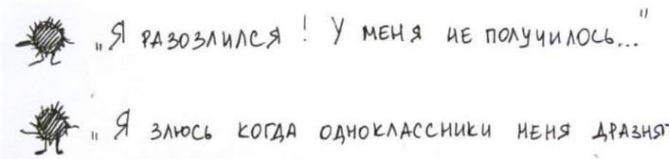 „Я разозлился! У меня не получилось..."
„Я злюсь когда одноклассники меня дразнят